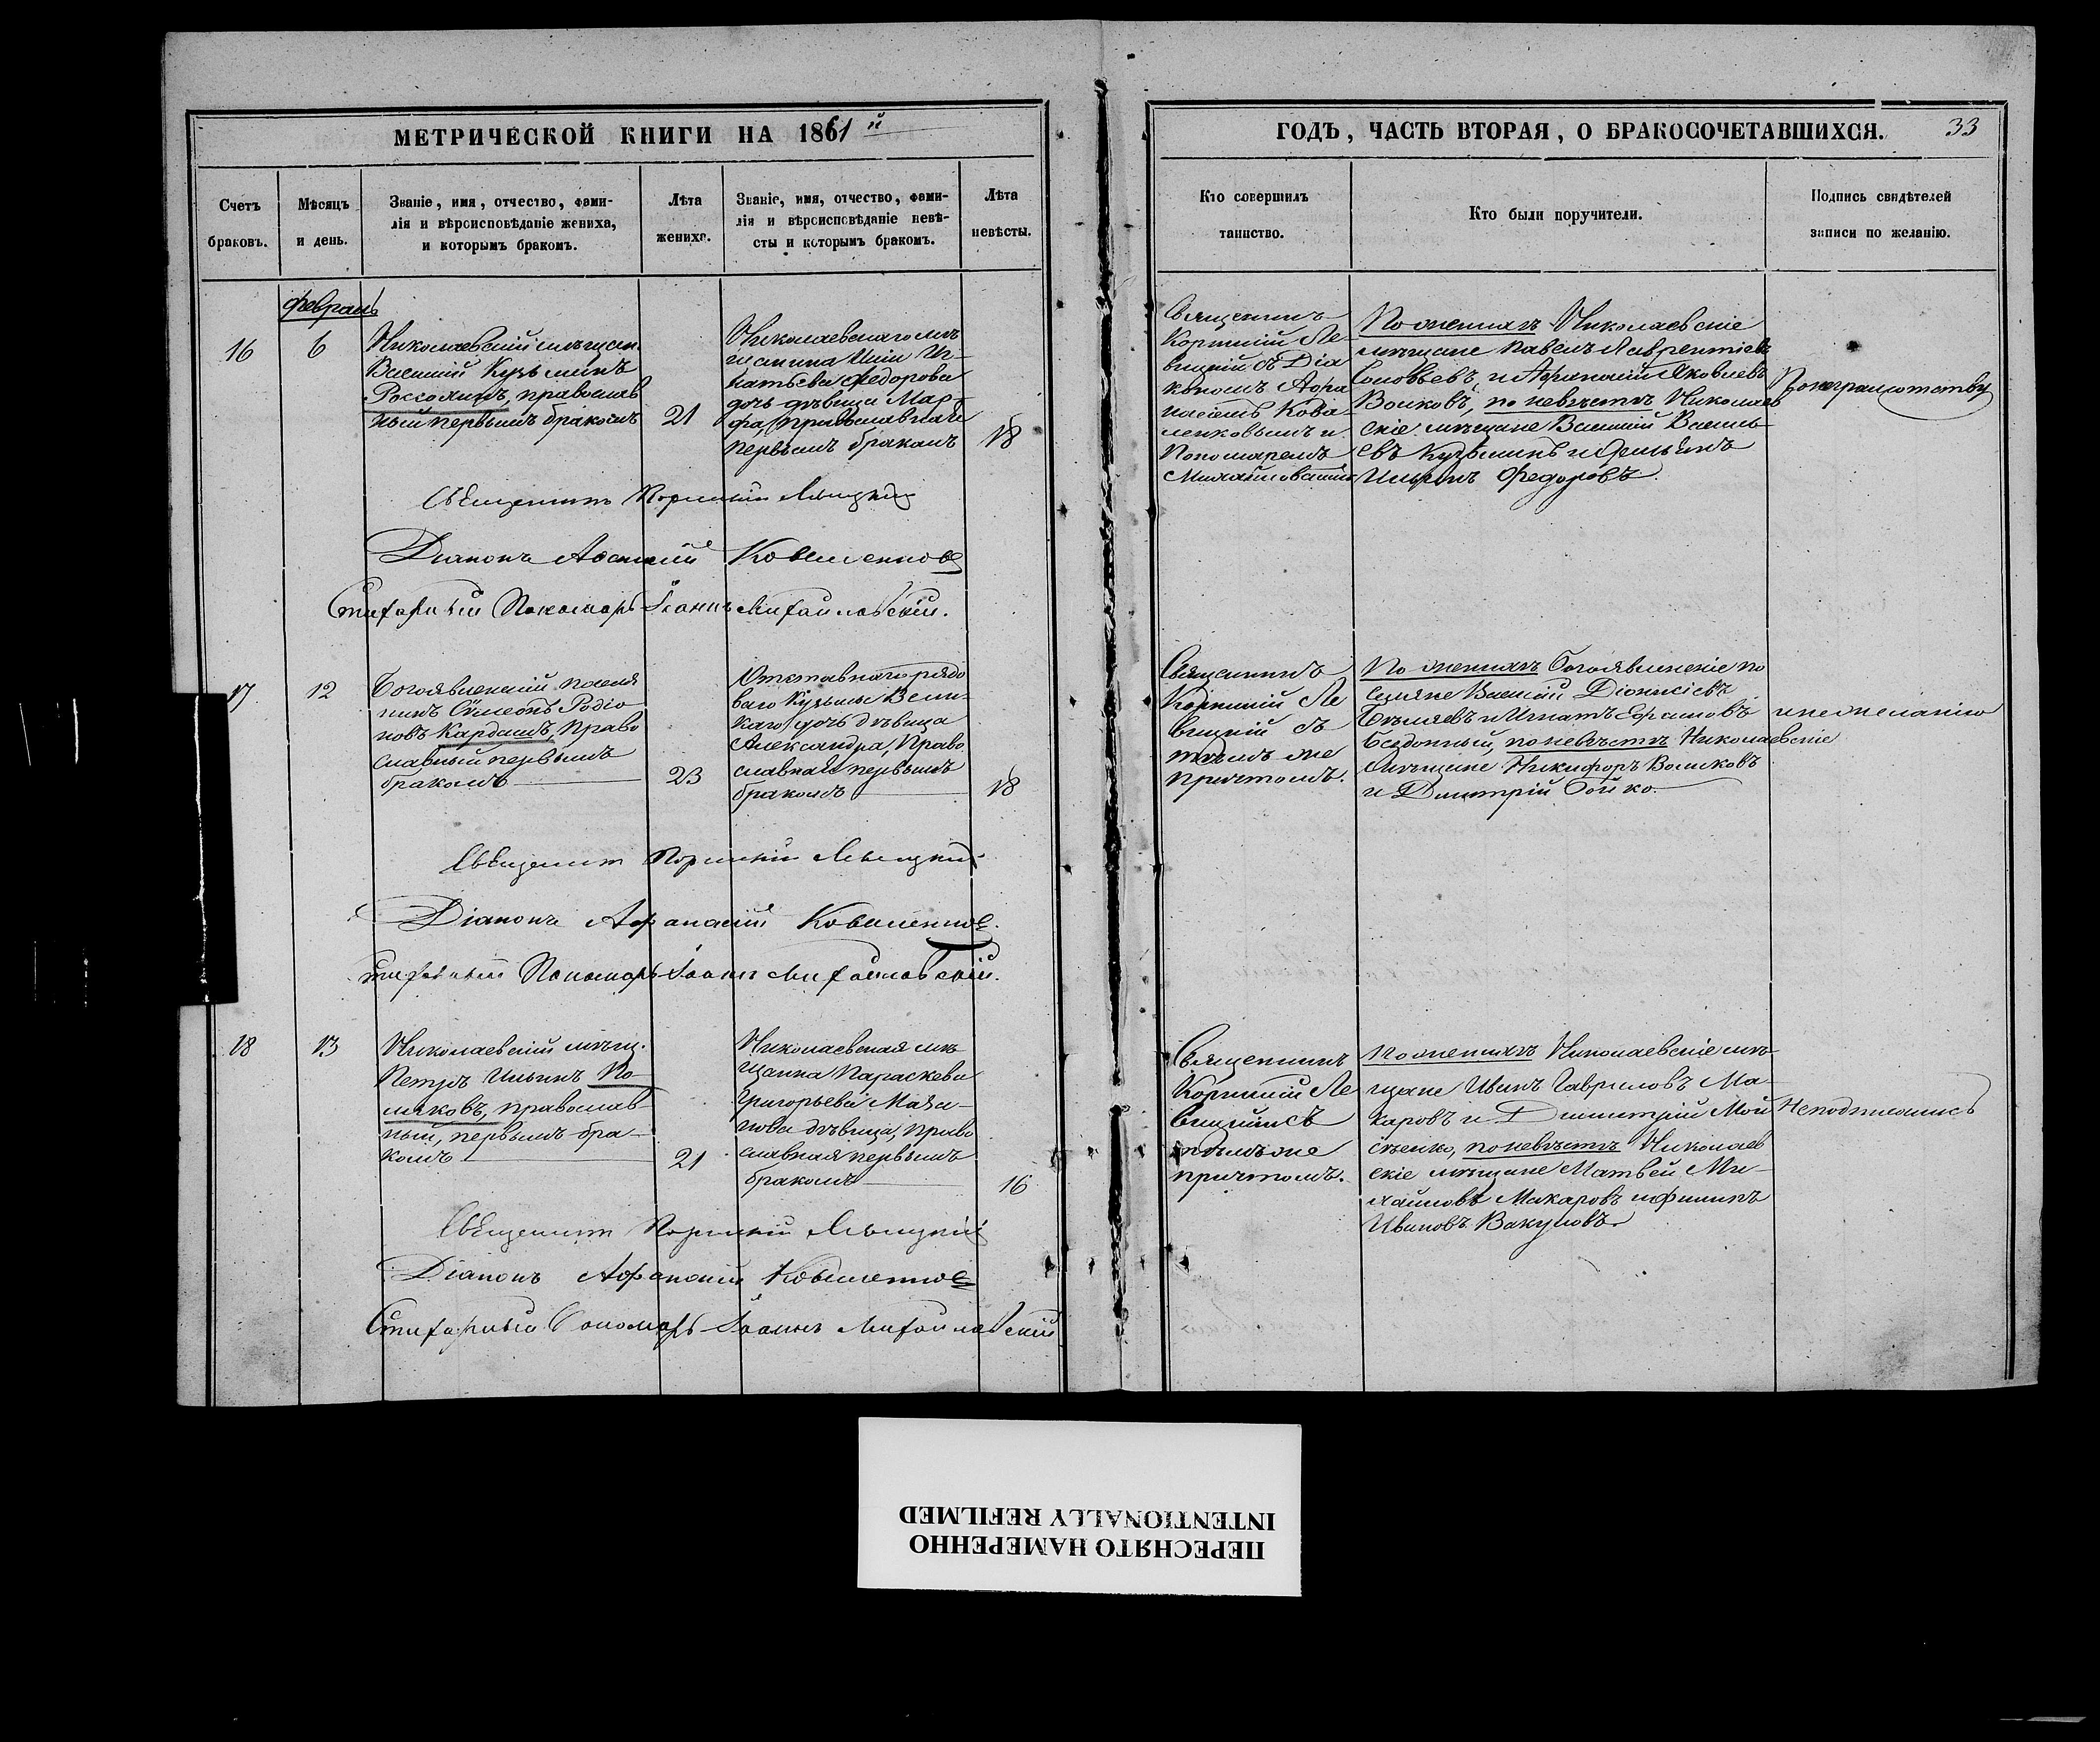 МЕТРИЧЕСКОЙ КНИГИ НА 1861й
ГОДЪ, ЧАСТЬ ВТОРАЯ, О БРАКОСОЧЕТАВШИХСЯ. 33
Счетъ
браковъ.
Мѣсяцъ
и день.
Званіе, имя, отчество, фами-
лія и вѣроисповѣданіе жениха,
и которымъ бракомъ.
Лѣта
жениха.
Званіе, имя, отчество, фами-
лія и вѣроисповѣданіе невѣ-
сты и которымъ бракомъ.
Лѣта
невѣсты.
Кто совершилъ
таинство.
Кто были поручители.
Подпись свидѣтелей
записи по желанію.
февраль
16
6
Николаевскій мѣщан.
Василій Кузьминъ
Россолинъ, православ
ный первымъ бракомъ
21
Николаевскаго мѣ
щанина Ильи Иг-
натьева Федорова
дочь дѣвица Мар-
фа, православная
первымъ бракомъ
18
Священникъ
Корнилій Ле-
вицкій съ Діа
кономъ Афа
насіемъ Кова
ленковымъ и
Пономаремъ
Михайловскимъ
По женихѣ Николаевскіе
мѣщане Павелъ Лаврентіевъ
Соловьевъ, и Афанасій Яковлевъ
Волковъ, по невѣстѣ Николаев
скіе мѣщане Василій Василь
евъ Кузьминъ и
Ильинъ Федоровъ.
По неграмотству
Священникъ Корнилій Левицкій
Діаконъ Афанасій Коваленковъ
Стихарный Пономарь Іоаннъ Михайловскій.
17
12
Богоявленскій поселя
нинъ Сѵмеонъ Родіо
новъ Кардашъ, Право
славный первымъ
бракомъ
23
Отставнаго рядо
ваго Кузьмы Вели-
каго дочь дѣвица
Александра, Право
славная первымъ
бракомъ
18
Священникъ
Корнилій Ле
вицкій съ
тѣмъ же
причтомъ.
По женихѣ Богоявленскіе по
селяне Василій Діонисіевъ
Бѣляевъ и Игнатъ Ефимовъ
Бездонный, по невѣстѣ Николаевскіе
мѣщане Никифоръ Волковъ
и Дмитрій Бойко.
и нежеланію
Священникъ Корнилій Левицкій
Діаконъ Афанасій Коваленковъ.
Стихарный Пономарь Іоаннъ Михайловскій.
18
13
Николаевскій мѣщ.
Петръ Ильинъ По-
ляковъ, православ-
ный, первымъ бра-
комъ
21
Николаевская мѣ
щанка Параскева
Григорьева Маза-
нова дѣвица, Право
славная первымъ
бракомъ
16
Священникъ
Корнилій Ле
вицкій съ
тѣмъ же
причтомъ.
По женихѣ Николаевскіе мѣ-
щане Иванъ Гавриловъ Ма-
каровъ и Димитрій Мой
сѣенко, по невѣстѣ Николаев
скіе мѣщане Матвей Ми-
хайловъ Макаровъ и Филипъ
Ивановъ Вакуловъ
Неподписались
Священникъ Корнилій Левицкій
Діаконъ Афанасій Коваленковъ
Стихарный Пономарь Іоаннъ Михайловскій
ПЕРЕСНЯТО НАМЕРЕННО
INTENTIONALLY REFILMED